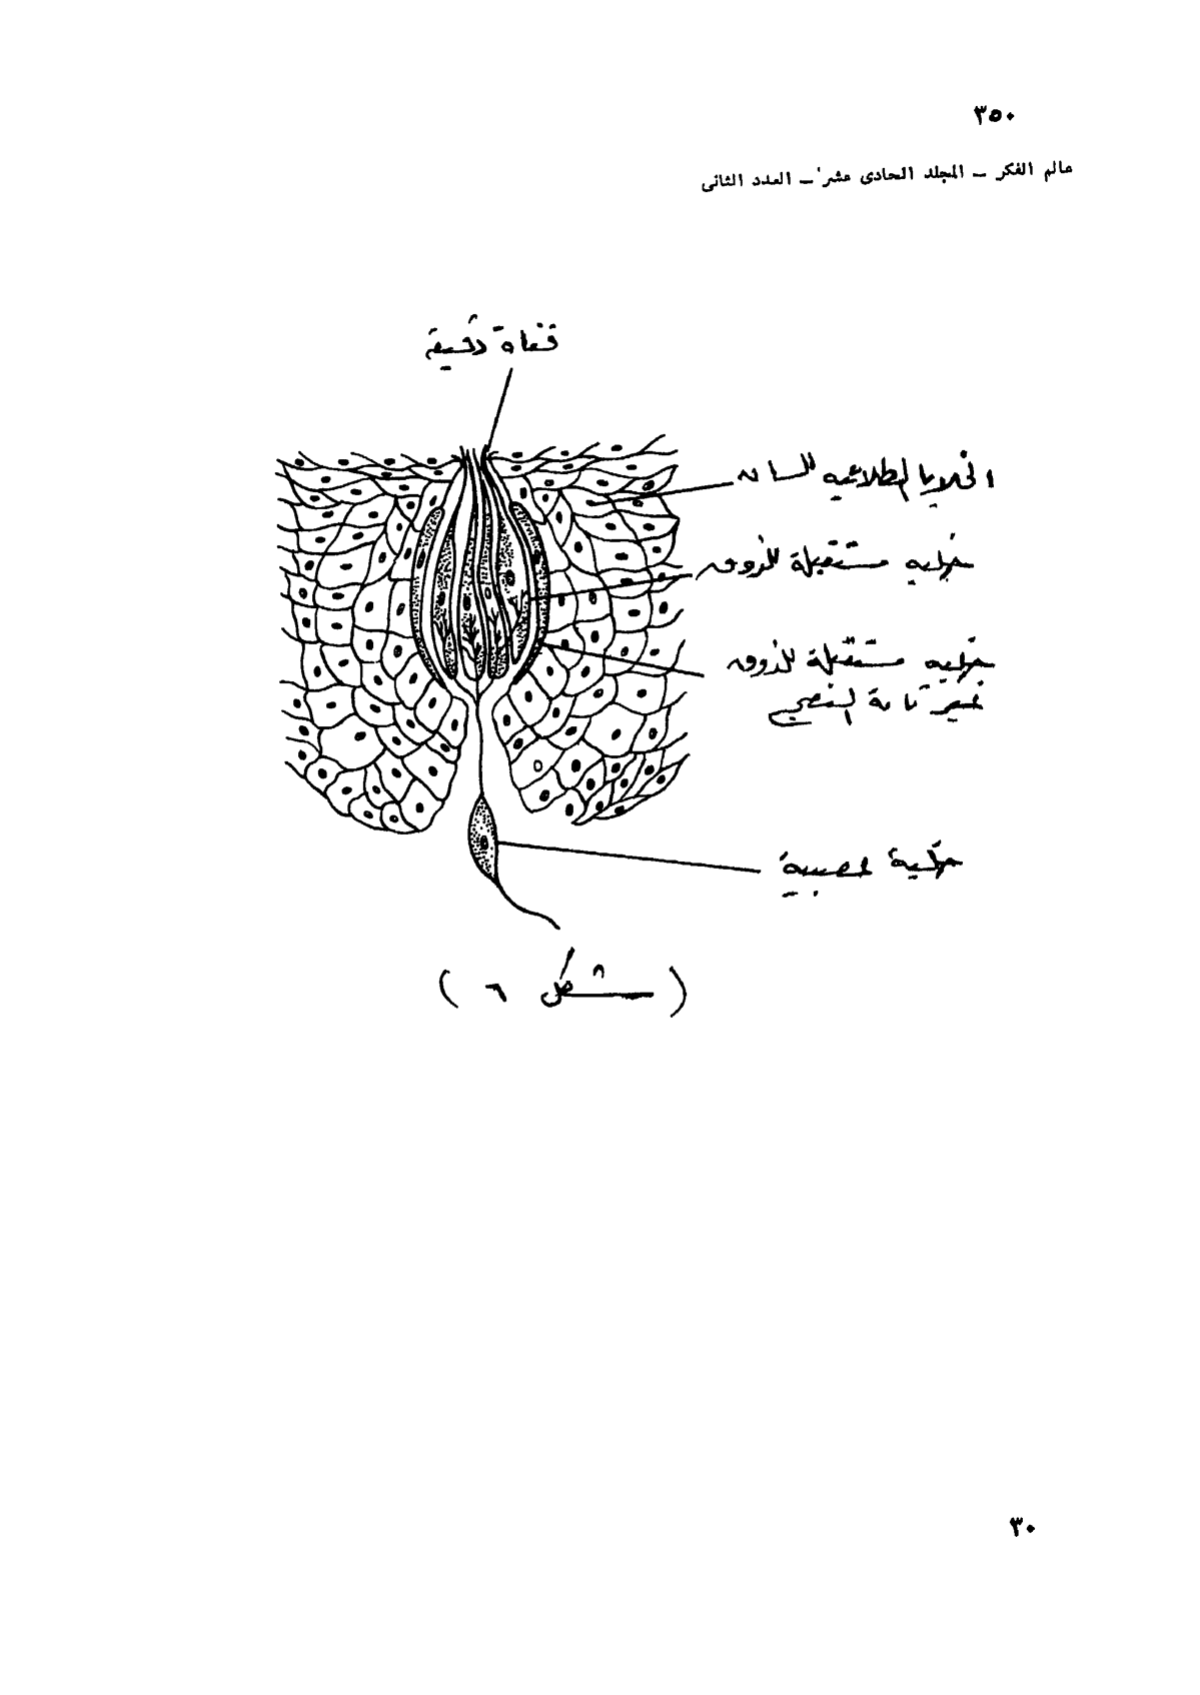 ٣٥٠
عالم الفكر – المجلد الحادى عشر – العدد الثانى
قناة دقيقة
الخلايا الطلائيه للسان
خليه مستقبلة للذوق
خليه مستقبلة للذوق
غير تامة النضج
خلية عصبية
( شكل ٦ )
٣٠